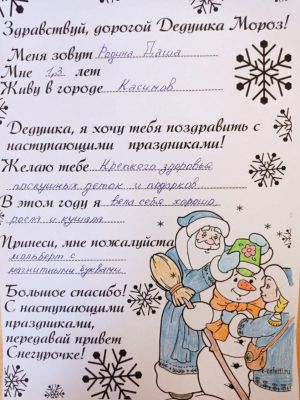 Здравствуй, дорогой Дедушка Мороз!
Меня зовут Родина Даша
Мне 1,3 лет
Живу в городе Касимов
Дедушка, я хочу тебя поздравить с
наступающими праздниками!
Желаю тебе Крепкого здоровья
послушных деток и подарков
В этом году я вела себя хорошо
росла и кушала
Принеси, мне пожалуйста
мольберт с
магнитными буквами
Большое спасибо!
С наступающими
праздниками,
передавай привет
Снегурочке!